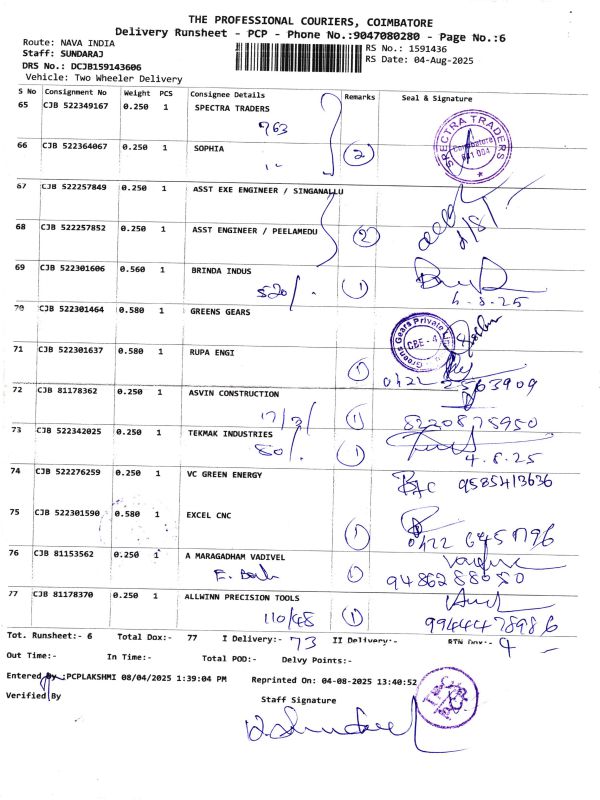 THE PROFESSIONAL COURIERS, COIMBATORE
Delivery Runsheet - PCP - Phone No.:9047080280 - Page No.:6
Route: NAVA INDIA RS No.: 1591436
Staff: SUNDARAJ RS Date: 04-Aug-2025
DRS No.: DCJB159143606
Vehicle: Two Wheeler Delivery
S No Consignment No Weight PCS Consignee Details Remarks Seal & Signature
65 CJB 522349167 0.250 1 SPECTRA TRADERS
763
SPECTRA TRADERS
Coimbatore
641 004
66 CJB 522364067 0.250 1 SOPHIA 2
67 CJB 522257849 0.250 1 ASST EXE ENGINEER / SINGANALLU
68 CJB 522257852 0.250 1 ASST ENGINEER / PEELAMEDU 2
69 CJB 522301606 0.560 1 BRINDA INDUS
520/. 1 4.8.25
70 CJB 522301464 0.580 1 GREENS GEARS
Greens Gears Private
CBE - 4
71 CJB 522301637 0.580 1 RUPA ENGI 1
0422 2563909
72 CJB 81178362 0.250 1 ASVIN CONSTRUCTION
17/3/ 1 8220875950
73 CJB 522342025 0.250 1 TEKMAK INDUSTRIES
80/. 1 4.8.25
74 CJB 522276259 0.250 1 VC GREEN ENERGY 9585413636
75 CJB 522301590 0.580 1 EXCEL CNC 1
0422 6451796
76 CJB 81153562 0.250 1 A MARAGADHAM VADIVEL
1 9486288050
77 CJB 81178370 0.250 1 ALLWINN PRECISION TOOLS
110/48 1 9944478986
Tot. Runsheet:- 6 Total Dox:- 77 I Delivery:- 73 II Delivery:- RTN Dox:- 4
Out Time:- In Time:- Total POD:- Delvy Points:-
Entered By :PCPLAKSHMI 08/04/2025 1:39:04 PM Reprinted On: 04-08-2025 13:40:52
Verified By Staff Signature